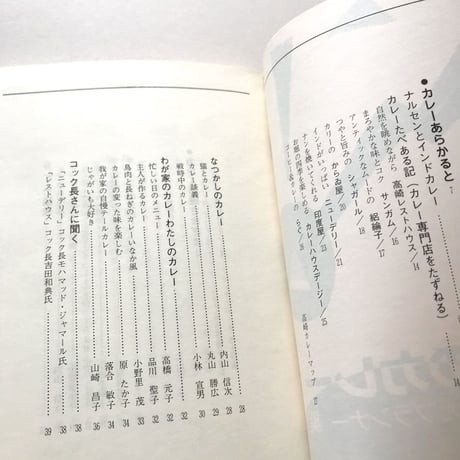 ●カレーあらかると 7
ナルセンとインドカレー
カレーたべある記(カレー専門店をたずねる)
高崎レストハウス/14
自然を眺めながら
サンガム/16
まろやかな味とコク
シャガール/
アンティックなムードの
絽綸子/17
つやと旨みの
から各屋/
カリーの
ニューデリー/21
インドがいっぱい
印度屋/23
ナンを焼いてくれる
カレーハウスデージー/25
お惣の四季を楽しむ
高崎カレーマップ 12
なつかしのカレー
猫とカレー 内山 信次 28
カレー談義 丸山 勝広 28
戦時中のカレー 小林 宣男 30
わが家のカレーわたしのカレー
忙しい日のメニュー 高橋 元子 32
主人が作るカレー 品川 聖子 32
鳥肉と長ねぎのカレーいなか風 小野里 茂 33
カレーの変った味を楽しむ 原 たか子 34
我が家の自慢テールカレー 落合 敏子 34
じゃがいも大好き 山崎 昌子 36
コック長さんに聞く 38
「ニューデリー」コック長モハマッド・ジャマール氏 38
「レストハウス」コック長吉田和典氏 39